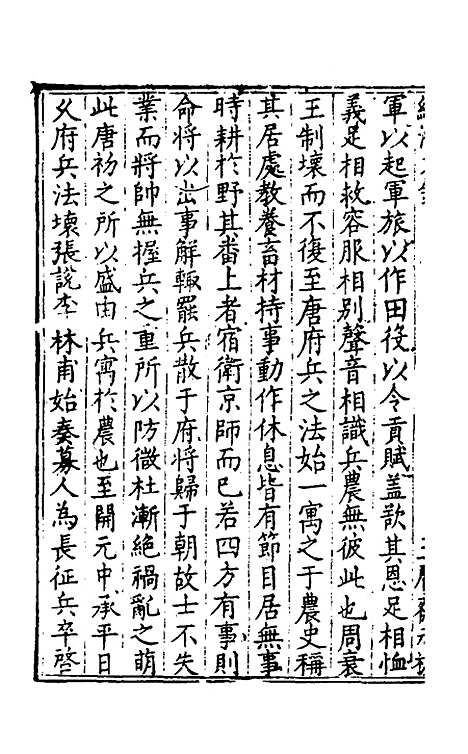 軍以起軍旅以作田役以令貢賦蓋欲其恩足相恤
義足相救容服相别聲音相識兵農無彼此也周衰
王制壞而不復至唐府兵之法始一寓之于農史稱
其居處教養畜材待事動作休息皆有節目居無事
時耕於野其番上者宿衛京師而已若四方有事則
命將以出事解輒罷兵散于府將歸于朝故士不失
業而將帥無握兵之重所以防微杜漸絶禍亂之萌
此唐初之所以盛由兵寓於農也至開元中承平日
乆府兵法壞張說李林甫始奏募人為長征兵卒啓